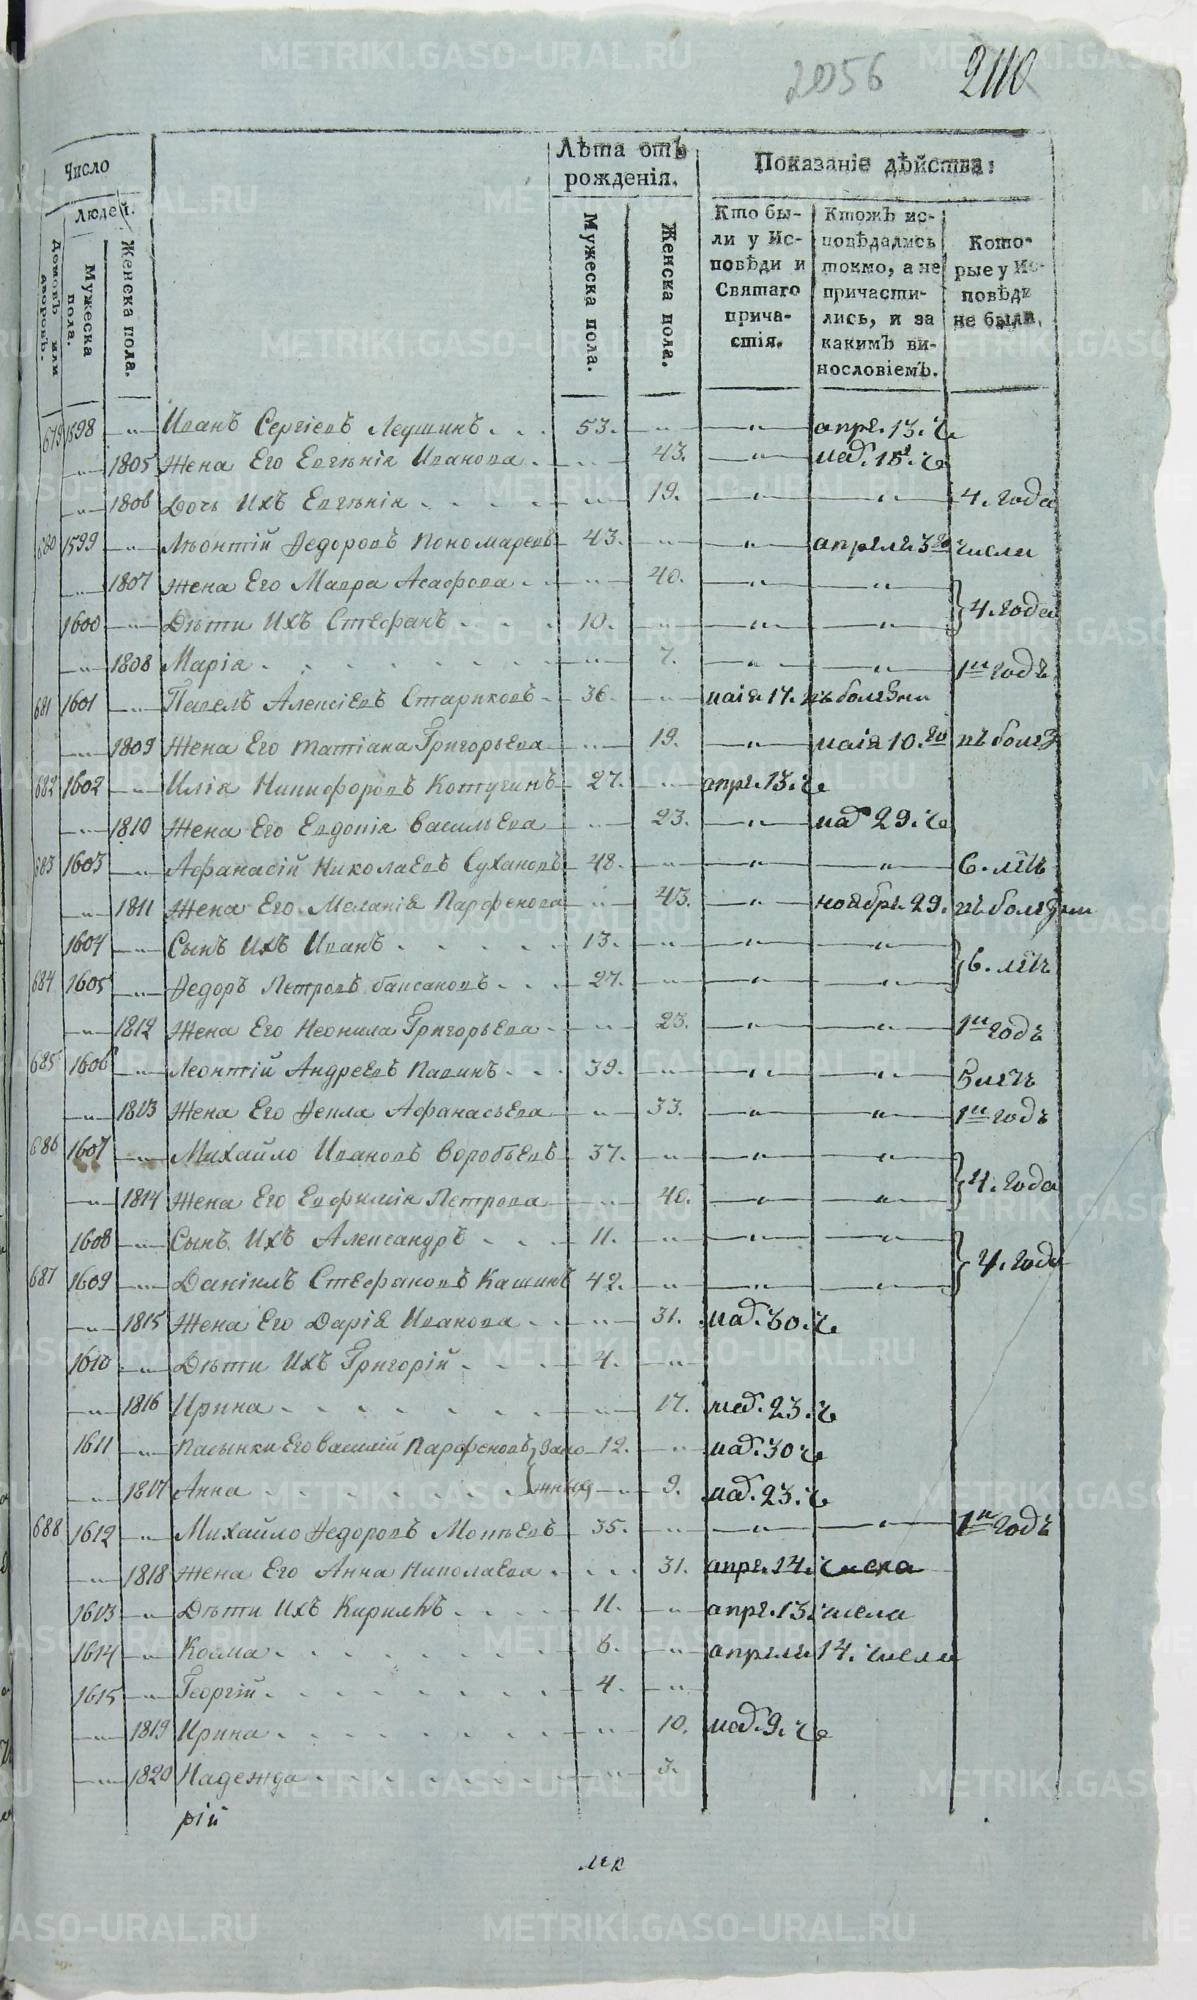 2056 2110
Число
людей.
Домовъ или дворовъ.
Мужеска пола.
Женска пола.
Лѣта отъ рожденія.
Мужеска пола.
Женска пола.
Показаніе дѣйства:
Кто бы-
ли у Ис-
повѣди и
Святаго
прича-
стія.
Ктожъ ис-
повѣдались
токмо, а не
причасти-
лись, и за
какимъ ви-
нословіемъ.
Кото-
рые у Ис-
повѣди
не были.
679 1598 —„— Иванъ Сергіевъ 53. —„— —„— апрѣ. 13. че
—„— 1805 Жена Его Евгѣнія Иванова 43. —„—
—„— 1806 Дочь Ихъ Евгѣнія —„— 19. —„— —„— 4. года
680 1599 —„— Лѣонтій Ѳедоровъ Пономаревъ 43. —„— —„— апреля 3го числа
—„— 1807 Жена Его Мавра —„— 40. —„— —„— } 4. года
1600 —„— Дѣти Ихъ Стефанъ 10. —„— —„— —„—
—„— 1808 Марія —„— 7. —„— —„— 1ⁿ годъ
681 1601 —„— Павелъ Алексіевъ Стариковъ 36. —„— маія 17.
—„— 1809 Жена Его Татіана Григорьева —„— 19. —„— маія 10.
682 1602 —„— Илія Никифоровъ Котугинъ 27. —„— апрѣ. 13. че
—„— 1810 Жена Его Евдокія Васильева —„— 23. —„— 29. че
683 1603 —„— Афанасій Николаевъ Сухановъ 48. —„— —„— —„— 6. лѣтъ
—„— 1811 Жена Его Меланія Парфенова —„— 43. —„— ноябр. 29.
1604 —„— Сынъ Ихъ Иванъ 13. —„— —„— —„— } 6. лѣтъ
684 1605 —„— Ѳедоръ Петровъ 27. —„— —„— —„—
—„— 1812 Жена Его Неонила Григорьева —„— 23. —„— —„— 1ⁿ годъ
685 1606 —„— Леонтій Андреевъ Павинъ 39. —„— —„— —„— 5 летъ
—„— 1813 Жена Его Ѳекла Афанасьева —„— 33. —„— —„— 1ⁿ годъ
686 1607 —„— Михайло Ивановъ Воробьевъ 37. —„— —„— —„— } 4. года
—„— 1814 Жена Его Евфимія Петрова —„— 40. —„— —„—
1608 —„— Сынъ Ихъ Александръ 11. —„— —„— —„— } 4. года
687 1609 —„— Даніилъ Стефановъ Кашинъ 42. —„— —„— —„—
—„— 1815 Жена Его Дарія Иванова —„— 31. 30. че
1610 —„— Дѣти Ихъ Григорій 4. —„—
—„— 1816 Ирина —„— 17. 23. че
1611 —„— Пасынки Его Василій Парфеновъ 12. —„— 30 че
—„— 1817 Анна —„— 9. 23. че
688 1612 —„— Михайло Ѳедоровъ Мокѣевъ 35. —„— —„— —„— 1ⁿ годъ
—„— 1818 Жена Его Анна Николаева 31. апрѣ. 14. числа
1613 —„— Дѣти Ихъ Кирилъ 11. —„— апрѣ. 13 числа
1614 —„— Косма 6. —„— апреля 14. числа
1615 —„— Георгій 4. —„—
—„— 1819 Ирина —„— 10. 9. че
—„— 1820 Надежда —„— 3.
рій
METRIKI.GASO-URAL.RU